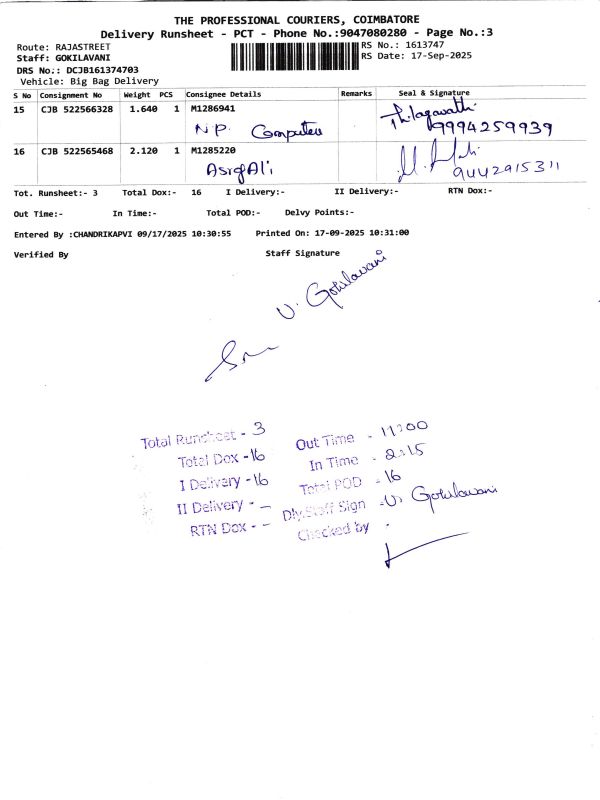 THE PROFESSIONAL COURIERS, COIMBATORE
Delivery Runsheet - PCT - Phone No.:9047080280 - Page No.:3
Route: RAJASTREET
RS No.: 1613747
Staff: GOKILAVANI
RS Date: 17-Sep-2025
DRS No.: DCJB161374703
Vehicle: Big Bag Delivery
S No Consignment No Weight PCS Consignee Details Remarks Seal & Signature
15 CJB 522566328 1.640 1 M1286941 Thilagavathi
N.P. Computers 9994259939
16 CJB 522565468 2.120 1 M1285220
AsrgAli 9442915311
Tot. Runsheet:- 3 Total Dox:- 16 I Delivery:- II Delivery:- RTN Dox:-
Out Time:- In Time:- Total POD:- Delvy Points:-
Entered By :CHANDRIKAPVI 09/17/2025 10:30:55 Printed On: 17-09-2025 10:31:00
Verified By Staff Signature
V. Gokilavani
Total Runsheet - 3
Total Dox - 16
I Delivery - 16
II Delivery - -
RTN Dox - -
Out Time - 11:00
In Time - 2:15
Total POD - 16
Dly.Staff Sign - V. Gokilavani
Checked by -